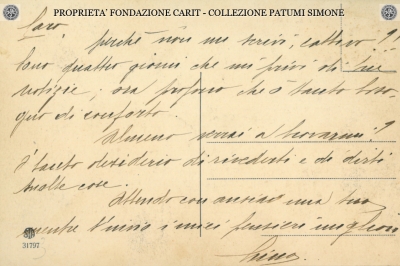 PROPRIETA' FONDAZIONE CARIT - COLLEZIONE PATUMI SIMONE
Caro,
perché non me scrivi, cattivo?!
Sono quattro giorni che mi privi di tue
notizie; ora proprio che ò tanto biso-
gno di conforto.
Almeno verrai a trovarmi?
È tanto desiderio di rivederti e di dirti
molte cose.
Attendo con ansia una tua
mentre t'invio i miei pensieri migliori
31797